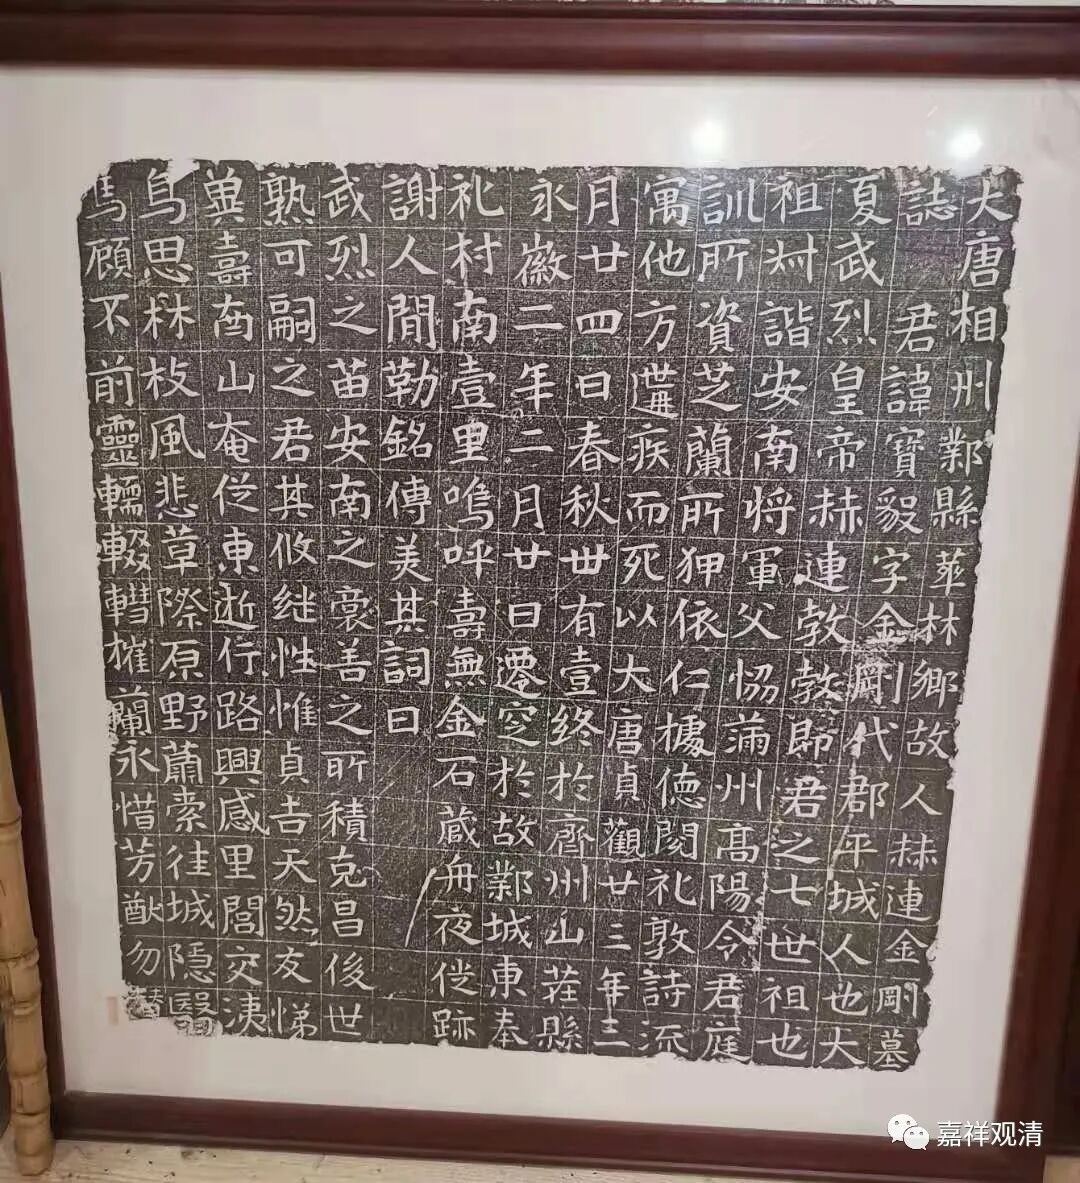 大唐相州鄴縣華林鄉故人赫連金剛墓
誌 君諱寶毅字金剛代郡平城人也大
夏武烈皇帝赫連勃勃即君之七世祖也
祖諧安南將軍父州高陽令君庭
訓所資芝蘭所狎依仁據德閱礼敦詩流
寓他方遘疾而死以大唐貞觀廿三年三
月廿四日春秋丗有壹終於齊州山茌縣
永徽二年二月廿日遷窆於故鄴城東奉
礼村南壹里嗚呼壽無金石藏舟夜徙跡
謝人間勒銘傳美其詞曰
武烈之苗安南之裔善之所積克昌後世
熟可嗣之君其攸继性惟貞吉天然友悌
冀壽南山奄從東逝行路興感里閭交洟
鳥思林枝風悲草際原野蕭索佳城隱翳
馬顧不前靈轜輟轊摧蘭永惜芳猷勿替
嘉祥观清